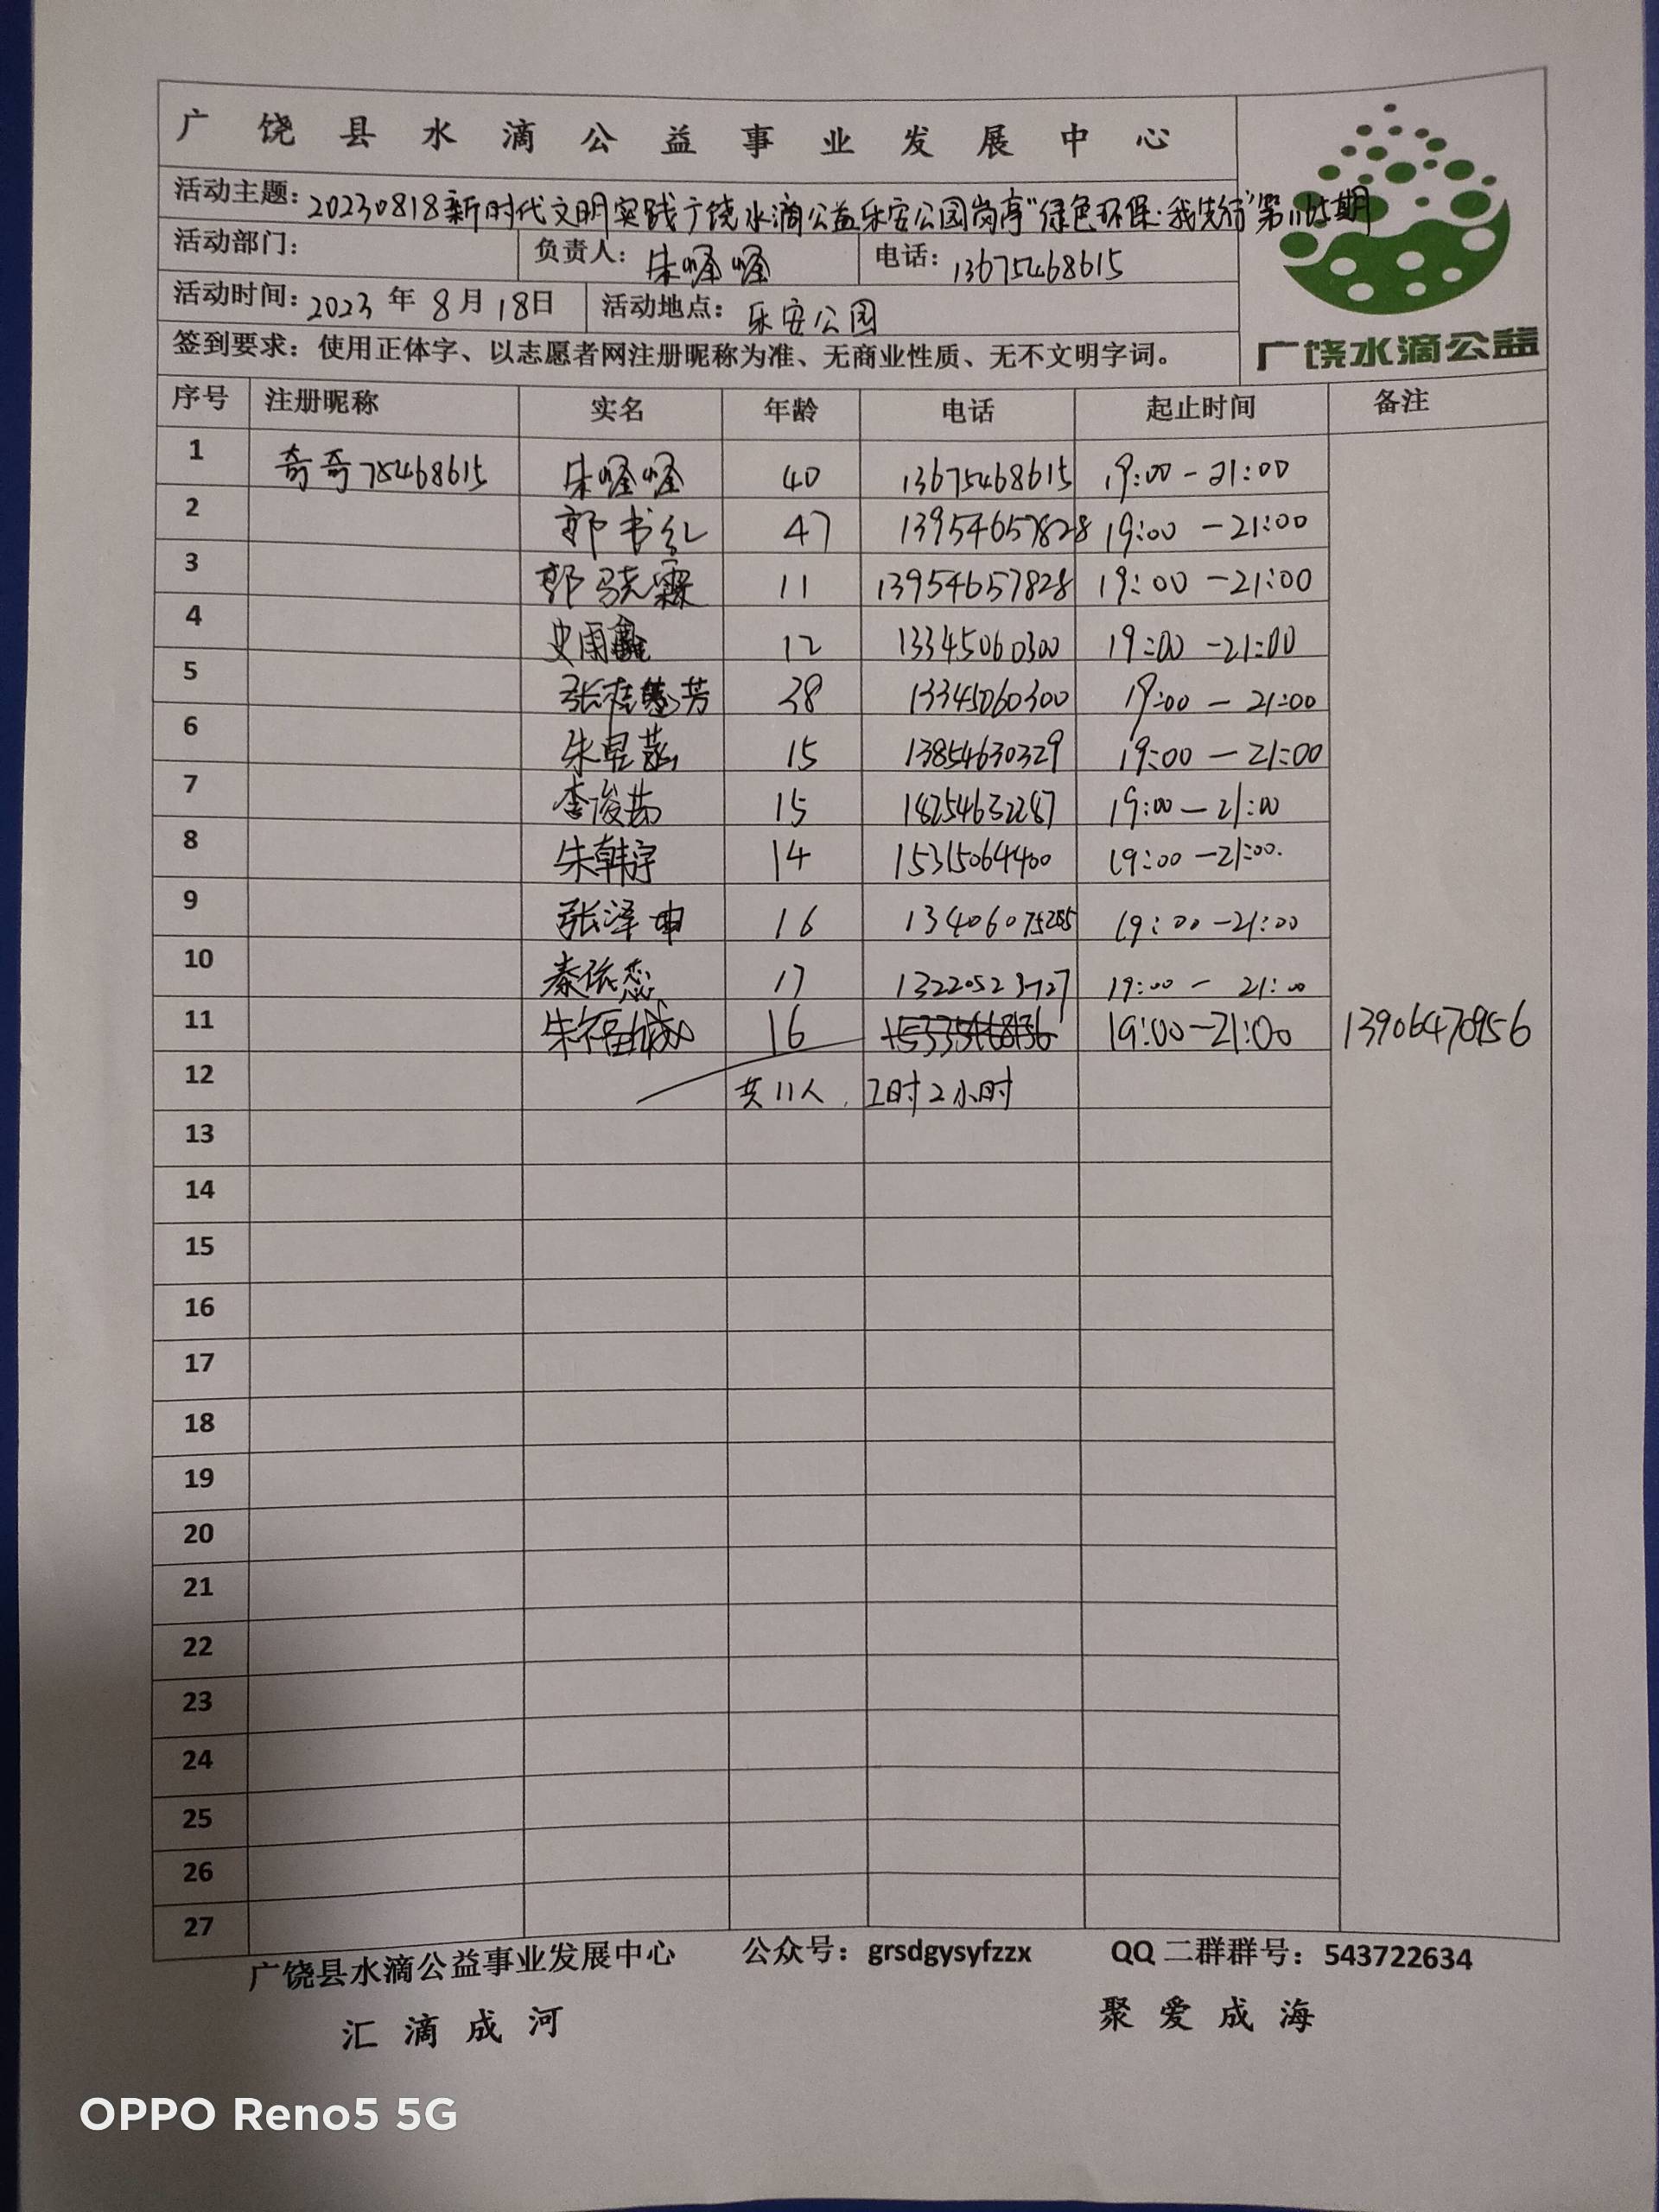 广饶县水滴公益事业发展中心
活动主题：20230818新时代文明实践广饶水滴公益乐安公园岗亭“绿色环保·我先行”第1165期
活动部门： 负责人：朱怪怪 电话：13675468615
活动时间：2023年8月18日 活动地点：乐安公园
签到要求：使用正体字、以志愿者网注册昵称为准、无商业性质、无不文明字词。
广饶水滴公益
序号 注册昵称 实名 年龄 电话 起止时间 备注
1 奇奇75468615 朱怪怪 40 13675468615 19:00-21:00
2 郭书红 47 13954657828 19:00-21:00
3 郭骁霖 11 13954657828 19:00-21:00
4 史雨鑫 12 13345060300 19:00-21:00
5 张桂芳 38 13345060300 19:00-21:00
6 朱昱菡 15 13854630329 19:00-21:00
7 李俊茹 15 18254632287 19:00-21:00
8 朱韩宇 14 15315064400 19:00-21:00.
9 张泽坤 16 13406075285 19:00-21:00
10 秦依蕊 17 13220523727 19:00-21:00
11 朱福城 16 19:00-21:00 13906470956
12 共11人，工时2小时
13
14
15
16
17
18
19
20
21
22
23
24
25
26
27
广饶县水滴公益事业发展中心 公众号：grsdgysyfzzx QQ二群群号：543722634
汇滴成河 聚爱成海
OPPO Reno5 5G